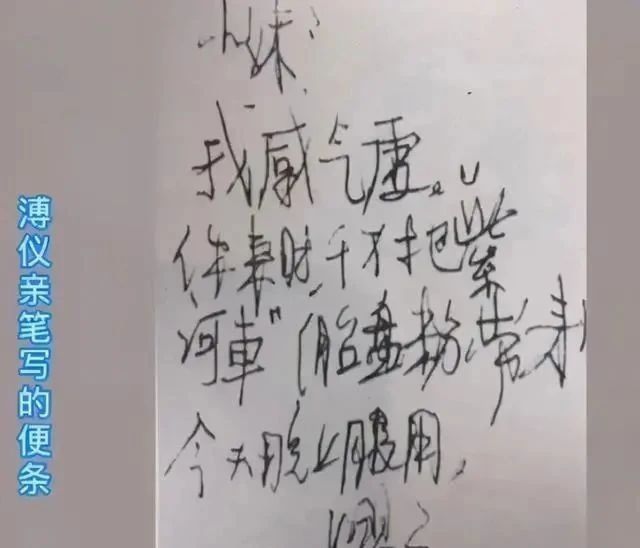 溥仪亲笔写的便条
小妹：
我感气虚。
你来时，千万把"紫
河車"（胎盘粉）带来
今天晚上服用，